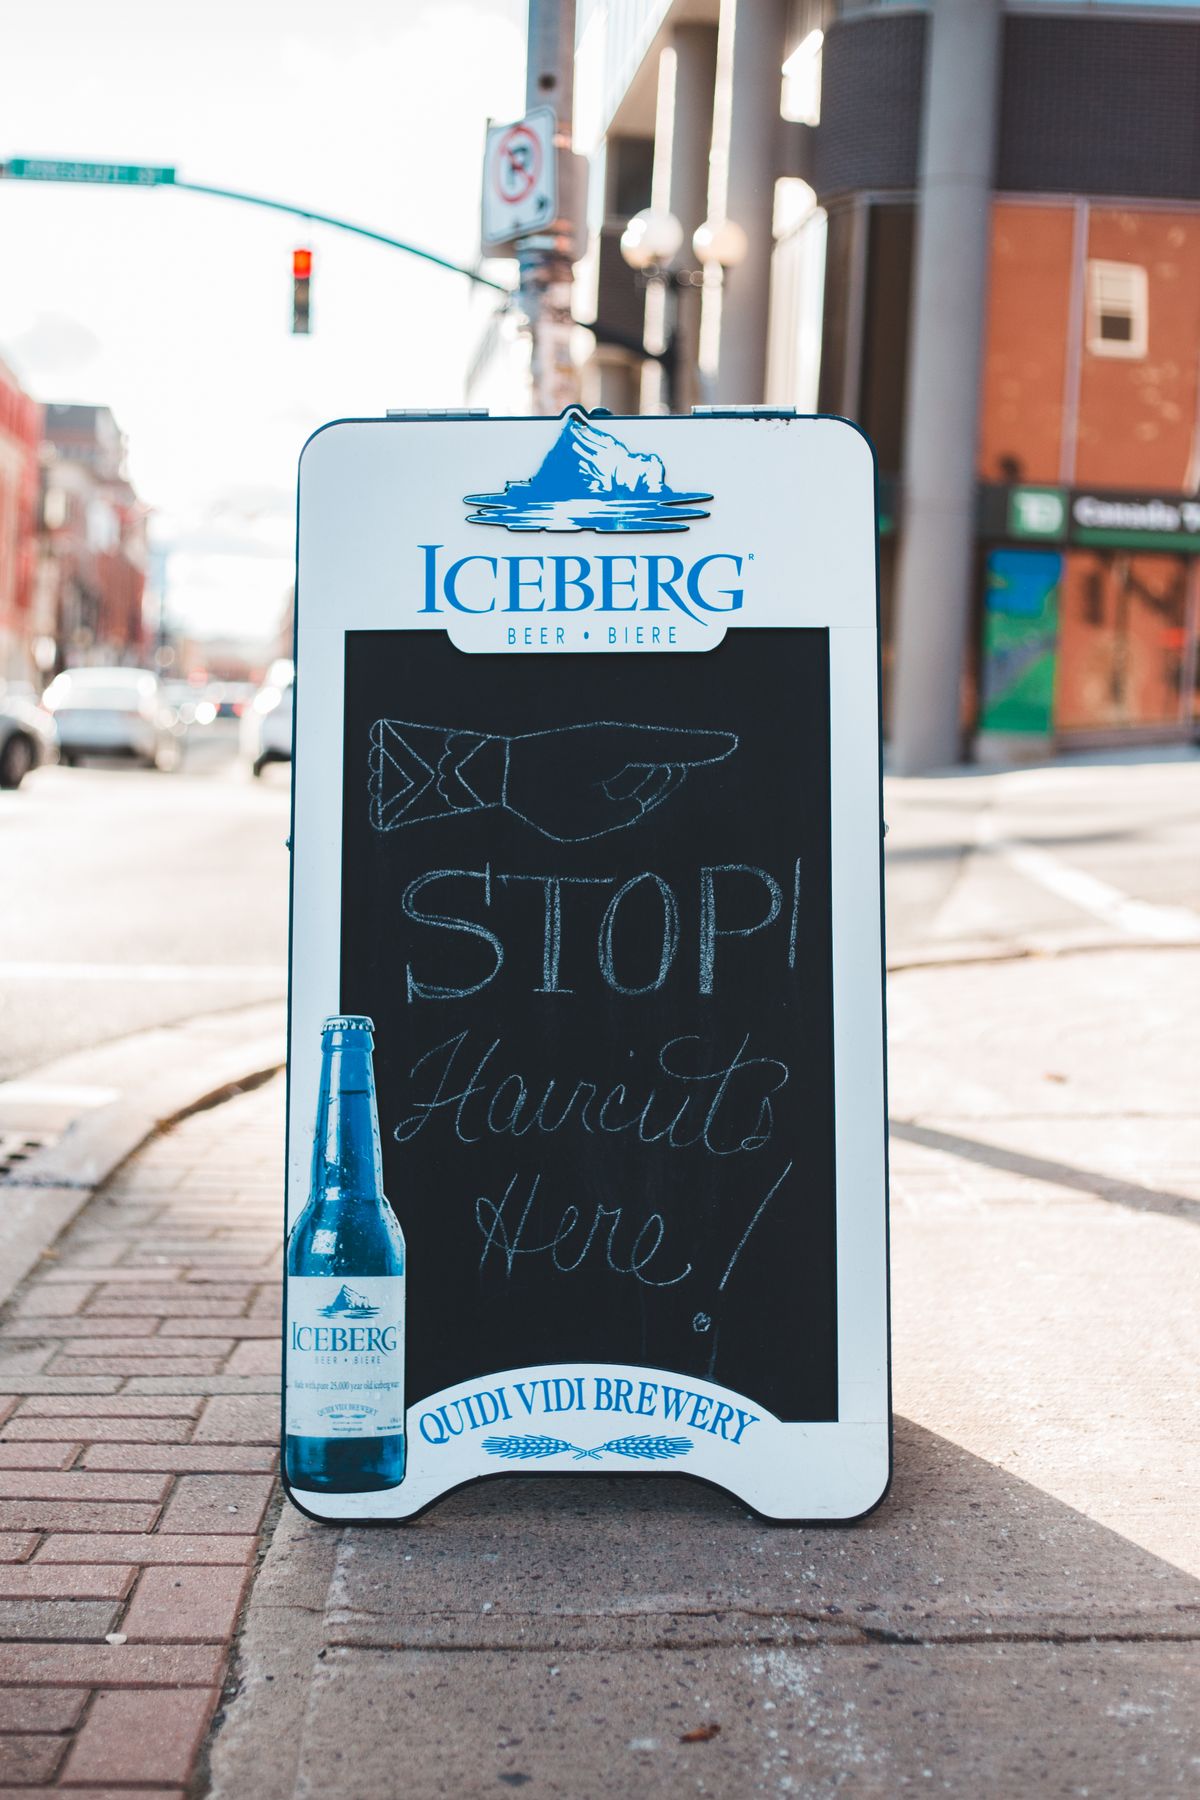 P
TD Canada T
ICEBERG®
BEER • BIERE
STOP!
Haircuts
Here!
ICEBERG
BEER • BIERE
Made with pure 25,000 year old iceberg water
QUIDI VIDI BREWERY
QUIDI VIDI BREWERY